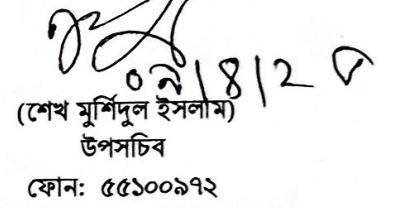 (শেখ মুর্শিদুল ইসলাম)
উপসচিব
ফোন: ৫৫১০০৯৭২